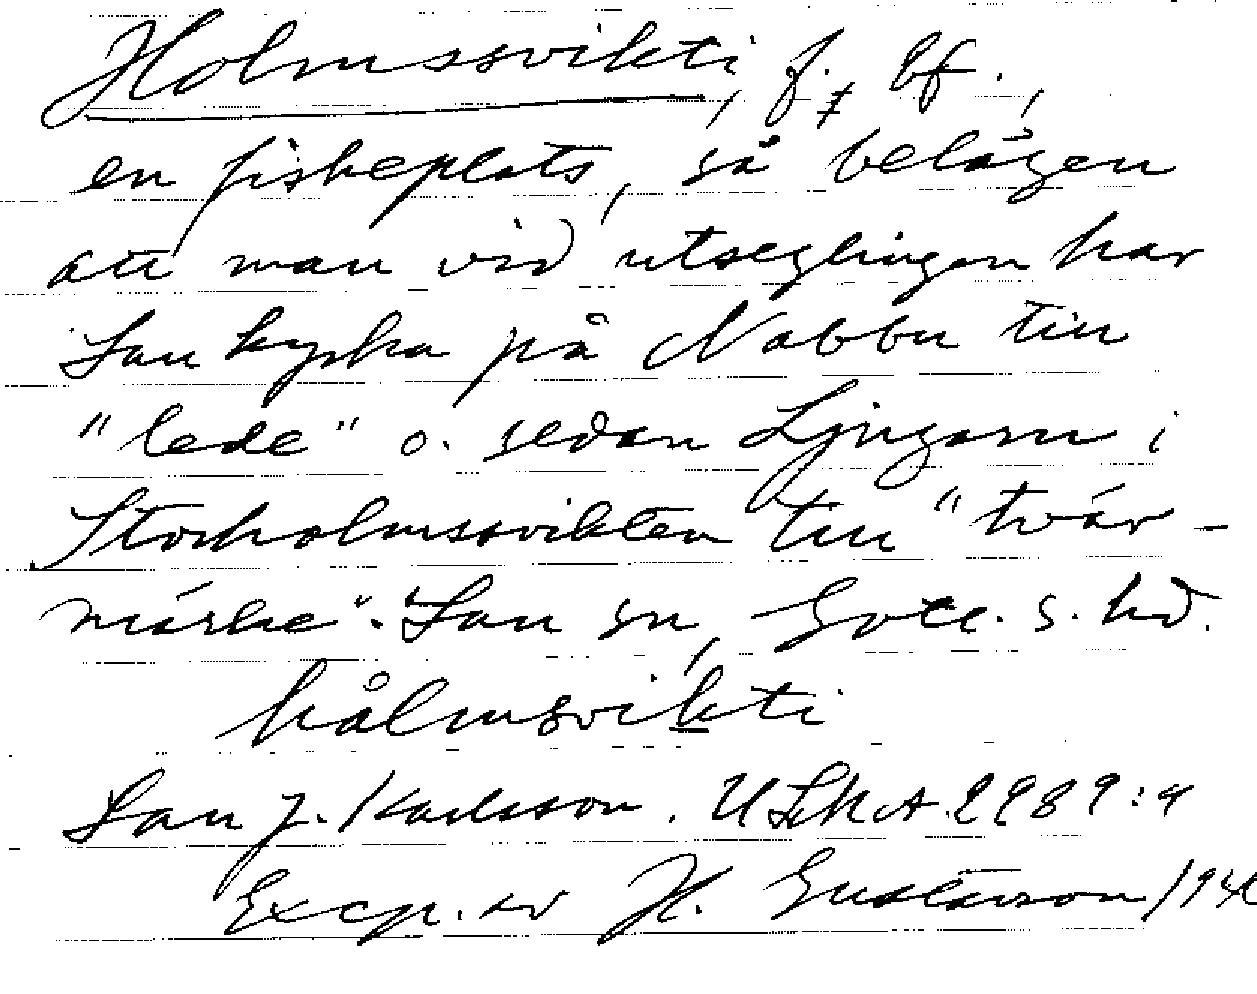 Holmssvikti, f., bf.,
en fiskeplats, så belägen
att man vid utseglingen har
Lau kyrka på Nabbu till
"lede" o. sedan Ljugarn i
Storholmssvikten till "tvär-
märke". Lau sn, Gotl. s. hd.
hålmsvikti
Lau J. Karlsson. ULMA 1989:4
Excp. av H. Gustavson/